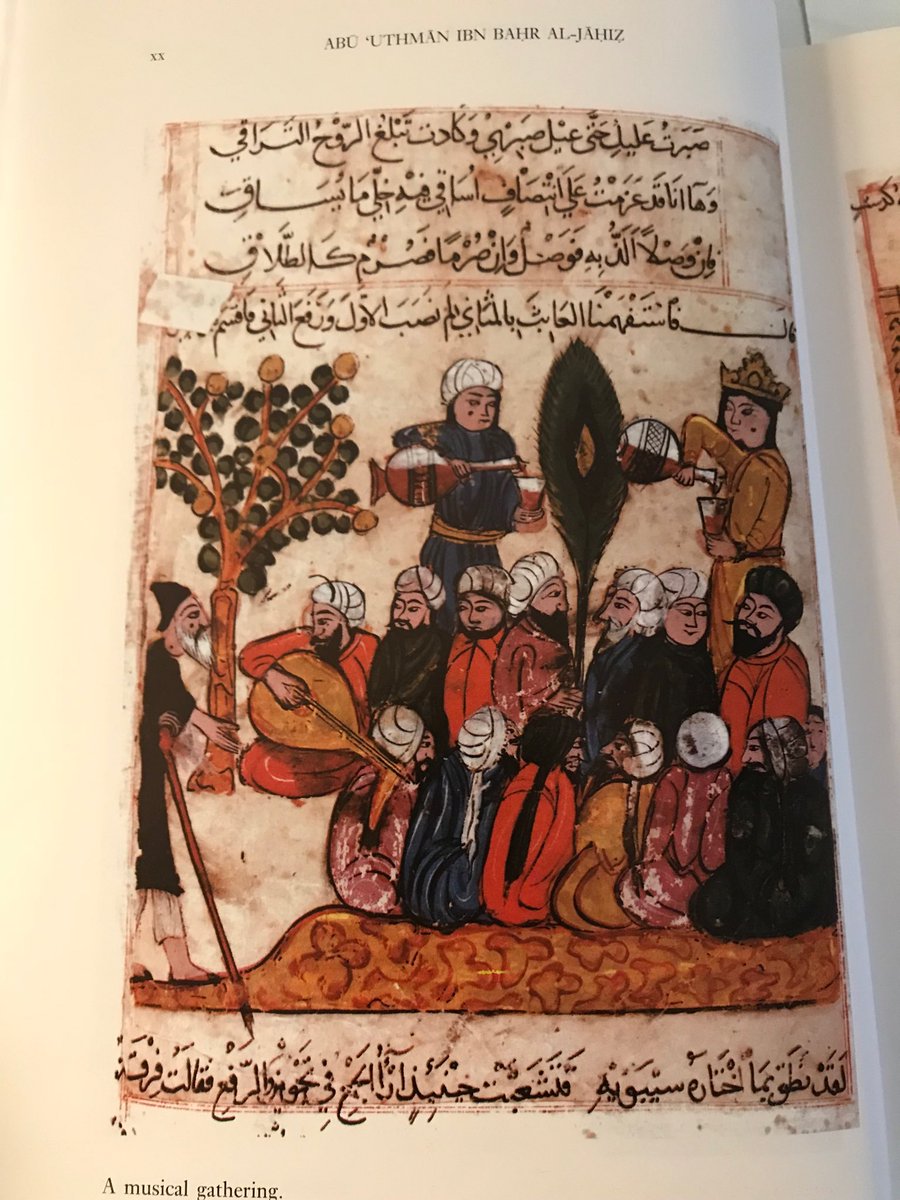 xx
ABŪ ‘UTHMĀN IBN BAḤR AL-JĀḤIẒ
صَبَرتُ عَليكِ حَتَّى عيْل صَبْرِي وَكَادت تَبْلغ الرّوْحُ التَراقي
وَهَا انا قَد عَزمْتُ عَلَى انْتِصَافٍ اُسَاقي فيْهِ خِلّي مَا يُسَاقي
فاِنْ وَصْلاً اَلَذُّ بِهِ فَوَصْلٌ وَاِنْ صُرْمًا فَصُرْمٌ كَالطَّلَاقِ
قال فاسْتَفْهَمْنَا العَابِثَ بِالمَثَاني لِمَ نَصَبَ الاَوّلَ وَرَفَعَ الثَّاني فاَقْسَمَ
لَقَدْ نَطَقَ بمَا اخْتَارَهُ سيْبَوَيْهِ فَتَشَعَّبَت حِيْنَئِذٍ اَرَآءُ الجمْعِ في تَجْوِيْزِ والرَّفعِ فقَالَت فِرقَة
A musical gathering.